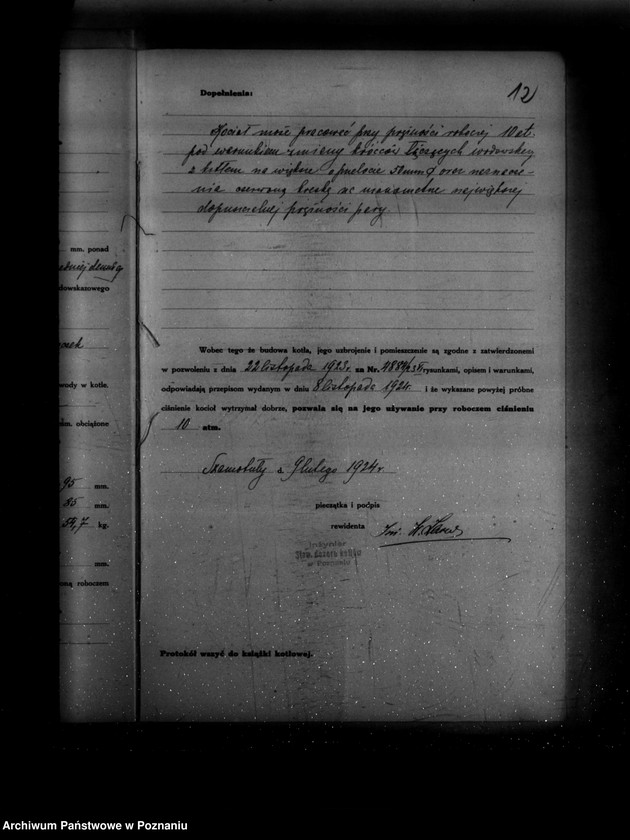 Dopełnienia:
12
Kocioł może pracować przy prężności roboczej 10 at.
pod warunkiem zmiany króćców łączących wodowskazy
z kotłem na większe o prześwicie 50 mm ϕ oraz
czerwoną kreską na manometrze największej
dopuszczalnej prężności pary.
mm. ponad
dowskazowego
wody w kotle.
obciążone
95 mm.
35 mm.
54,7 kg.
mm.
roboczem
Wobec tego że budowa kotła, jego uzbrojenie i pomieszczenie są zgodne z zatwierdzonemi
w pozwoleniu z dnia 22 listopada 1923 r. za Nr. rysunkami, opisem i warunkami,
odpowiadają przepisom wydanym w dniu 8 listopada 1921 r. i że wykazane powyżej próbne
ciśnienie kocioł wytrzymał dobrze, pozwala się na jego używanie przy roboczem ciśnieniu
10 atm.
Szamotuły d. 9 lutego 1924 r.
pieczątka i podpis
rewidenta
Inż.
Inżynier
w Poznaniu
Protokół wszyć do książki kotłowej.
Archiwum Państwowe w Poznaniu